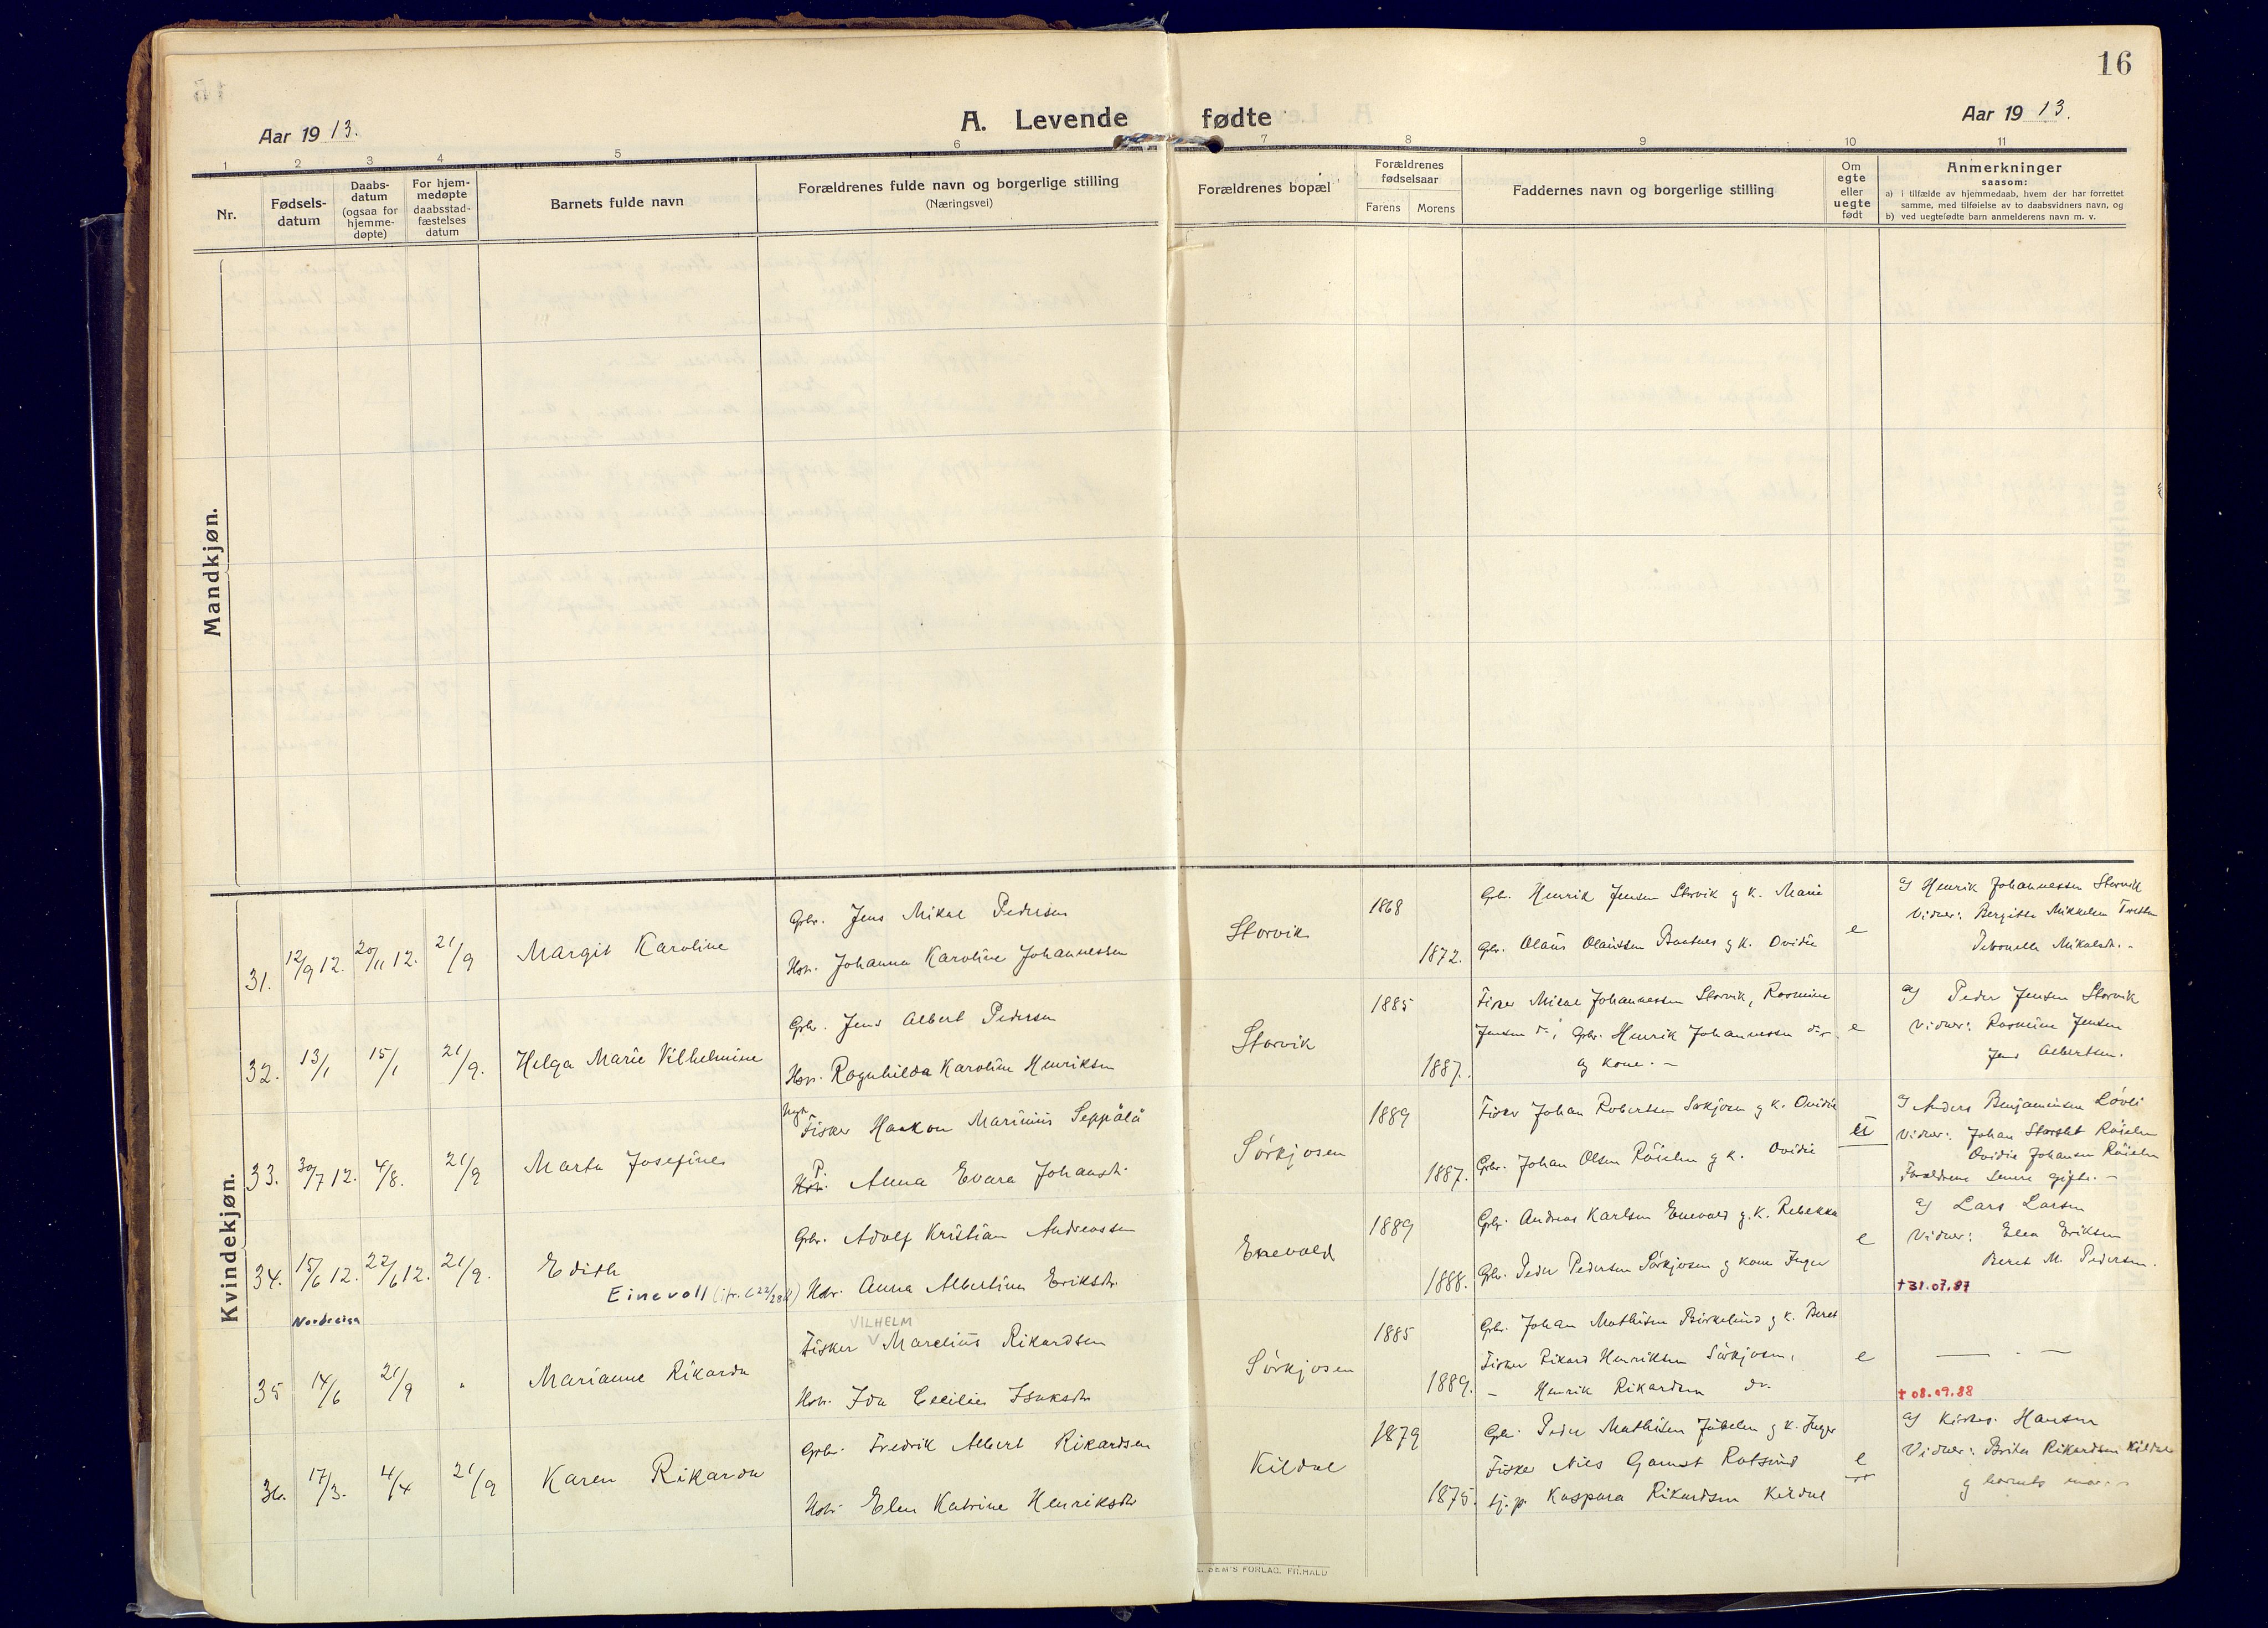 16
Aar 1913.
A. Levende fødte
Aar 1913.
1 2 3 4 5 6 7 8 9 10 11
Nr.
Fødsels-
datum
Daabs-
datum
(ogsaa for
hjemme-
døpte)
For hjem-
medøpte
daabsstad-
fæstelses
datum
Barnets fulde navn
Forældrenes fulde navn og borgerlige stilling
(Næringsvei)
Forældrenes bopæl
Forældrenes
fødselsaar
Farens Morens
Faddernes navn og borgerlige stilling
Om
egte
eller
uegte
født
Anmerkninger
saasom:
a) i tilfælde av hjemmedaab, hvem der har forrettet
samme, med tilføielse av to daabsvidners navn, og
b) ved uegtefødte barn anmelderens navn m. v.
Mandkjøn.
Kvindekjøn.
31. 12/9 12. 20/11 12. 21/9 Margit Karoline
Gbr. Jens Mikal Pedersen
Hstr. Johanna Karoline Johannessen
Storvik
1868
1872.
Gbr. Henrik Jensen Storvik g k. Marie
Gbr. Olaus Olaussen Baatnes g k. Ovidie
e
a) Henrik Johannessen Storvik
Vidner: Bergitte Mikkelsen
Petronella Mikalsdr. -
32. 13/1 15/1 21/9. Helga Marie Vilhelmine
Gbr. Jens Albert Pedersen
Hstr. Ragnhilda Karoline Henriksen
Storvik
1885
1887.
Fisker Mikal Johannessen Storvik, Rasmine
Jensen do; Gbr. Henrik Johannessen do
og kone. -
e
a) Peder Jensen Storvik
Vidner: Rasmine Jensen
Jens Albertsen.
33. 30/7 12. 4/8. 21/9 Marta Josefine
Fisker Haakon Marinius Seppälä
P. Anna Evara Johansdr.
Sørkjosen
1889
1887.
Fisker Johan Robertsen Sørkjosen g k. Ovidie
Gbr. Johan Olsen Röielen g k. Ovidie
u
a) Anders Benjaminsen Løvli
Vidner: Johan Storslet Röielen
Ovidie Johansen Röielen
Forældrene senere gifte. -
34. 15/6 12. 22/6 12. 21/9. Edith
Einevoll
Gbr. Adolf Kristian Andreassen
Hstr. Anna Albertine Eriksdtr.
Enevold
1889
1888.
Gbr. Andreas Karlsen Enevold g. k. Rebekka
Gbr. Peder Pedersen Sörkjosen g kone Inger
e
a) Lars Larsen
Vidner: Elen Eriksen
Beret M. Pedersen.
† 31.07.87
Nordreisa
35 14/6 21/9 " Marianne Rikarda
VILHELM
Fisker V Marelius Rikardsen
Hstr. Ida Cecilie Isaksdtr
Sörkjosen
1885
1889.
Gbr. Johan Mathisen Birkelund g k. Beret
Fisker Rikard Henriksen Sörkjosen,
- Henrik Rikardsen do.
e
— . —
† 08.09.88
36. 17/3. 4/4 21/9 Karen Rikarda
Gbr. Fredrik Albert Rikardsen
Hstr. Elen Katrine Henriksdtr
Kildal
1879
1875.
Gbr. Peder Mathisen g k. Inger
Fisker Nils Gamst Rotsund
tj. p. Kaspara Rikardsen Kildal
e
a) Kirkes. Hansen
Vidner: Brita Rikardsen Kildal
g barnets mor. -